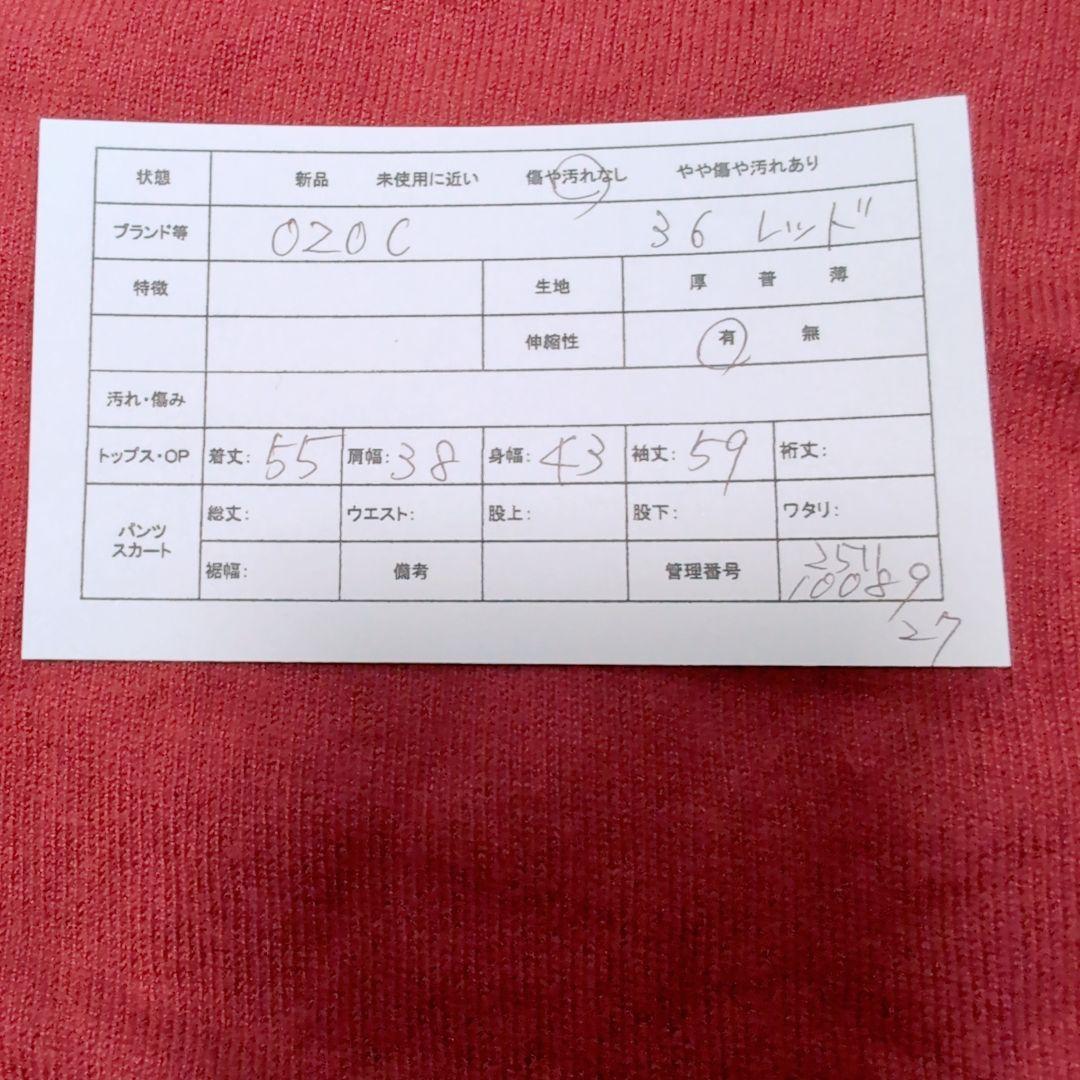 状態 新品 未使用に近い 傷や汚れなし やや傷や汚れあり
ブランド等 OZOC 36 レッド
特徴 生地 厚 普 薄
伸縮性 有 無
汚れ・傷み
トップス・OP 着丈: 55 肩幅: 38 身幅: 43 袖丈: 59 裄丈:
パンツ スカート 総丈: ウエスト: 股上: 股下: ワタリ:
裾幅: 備考 管理番号
10089
27